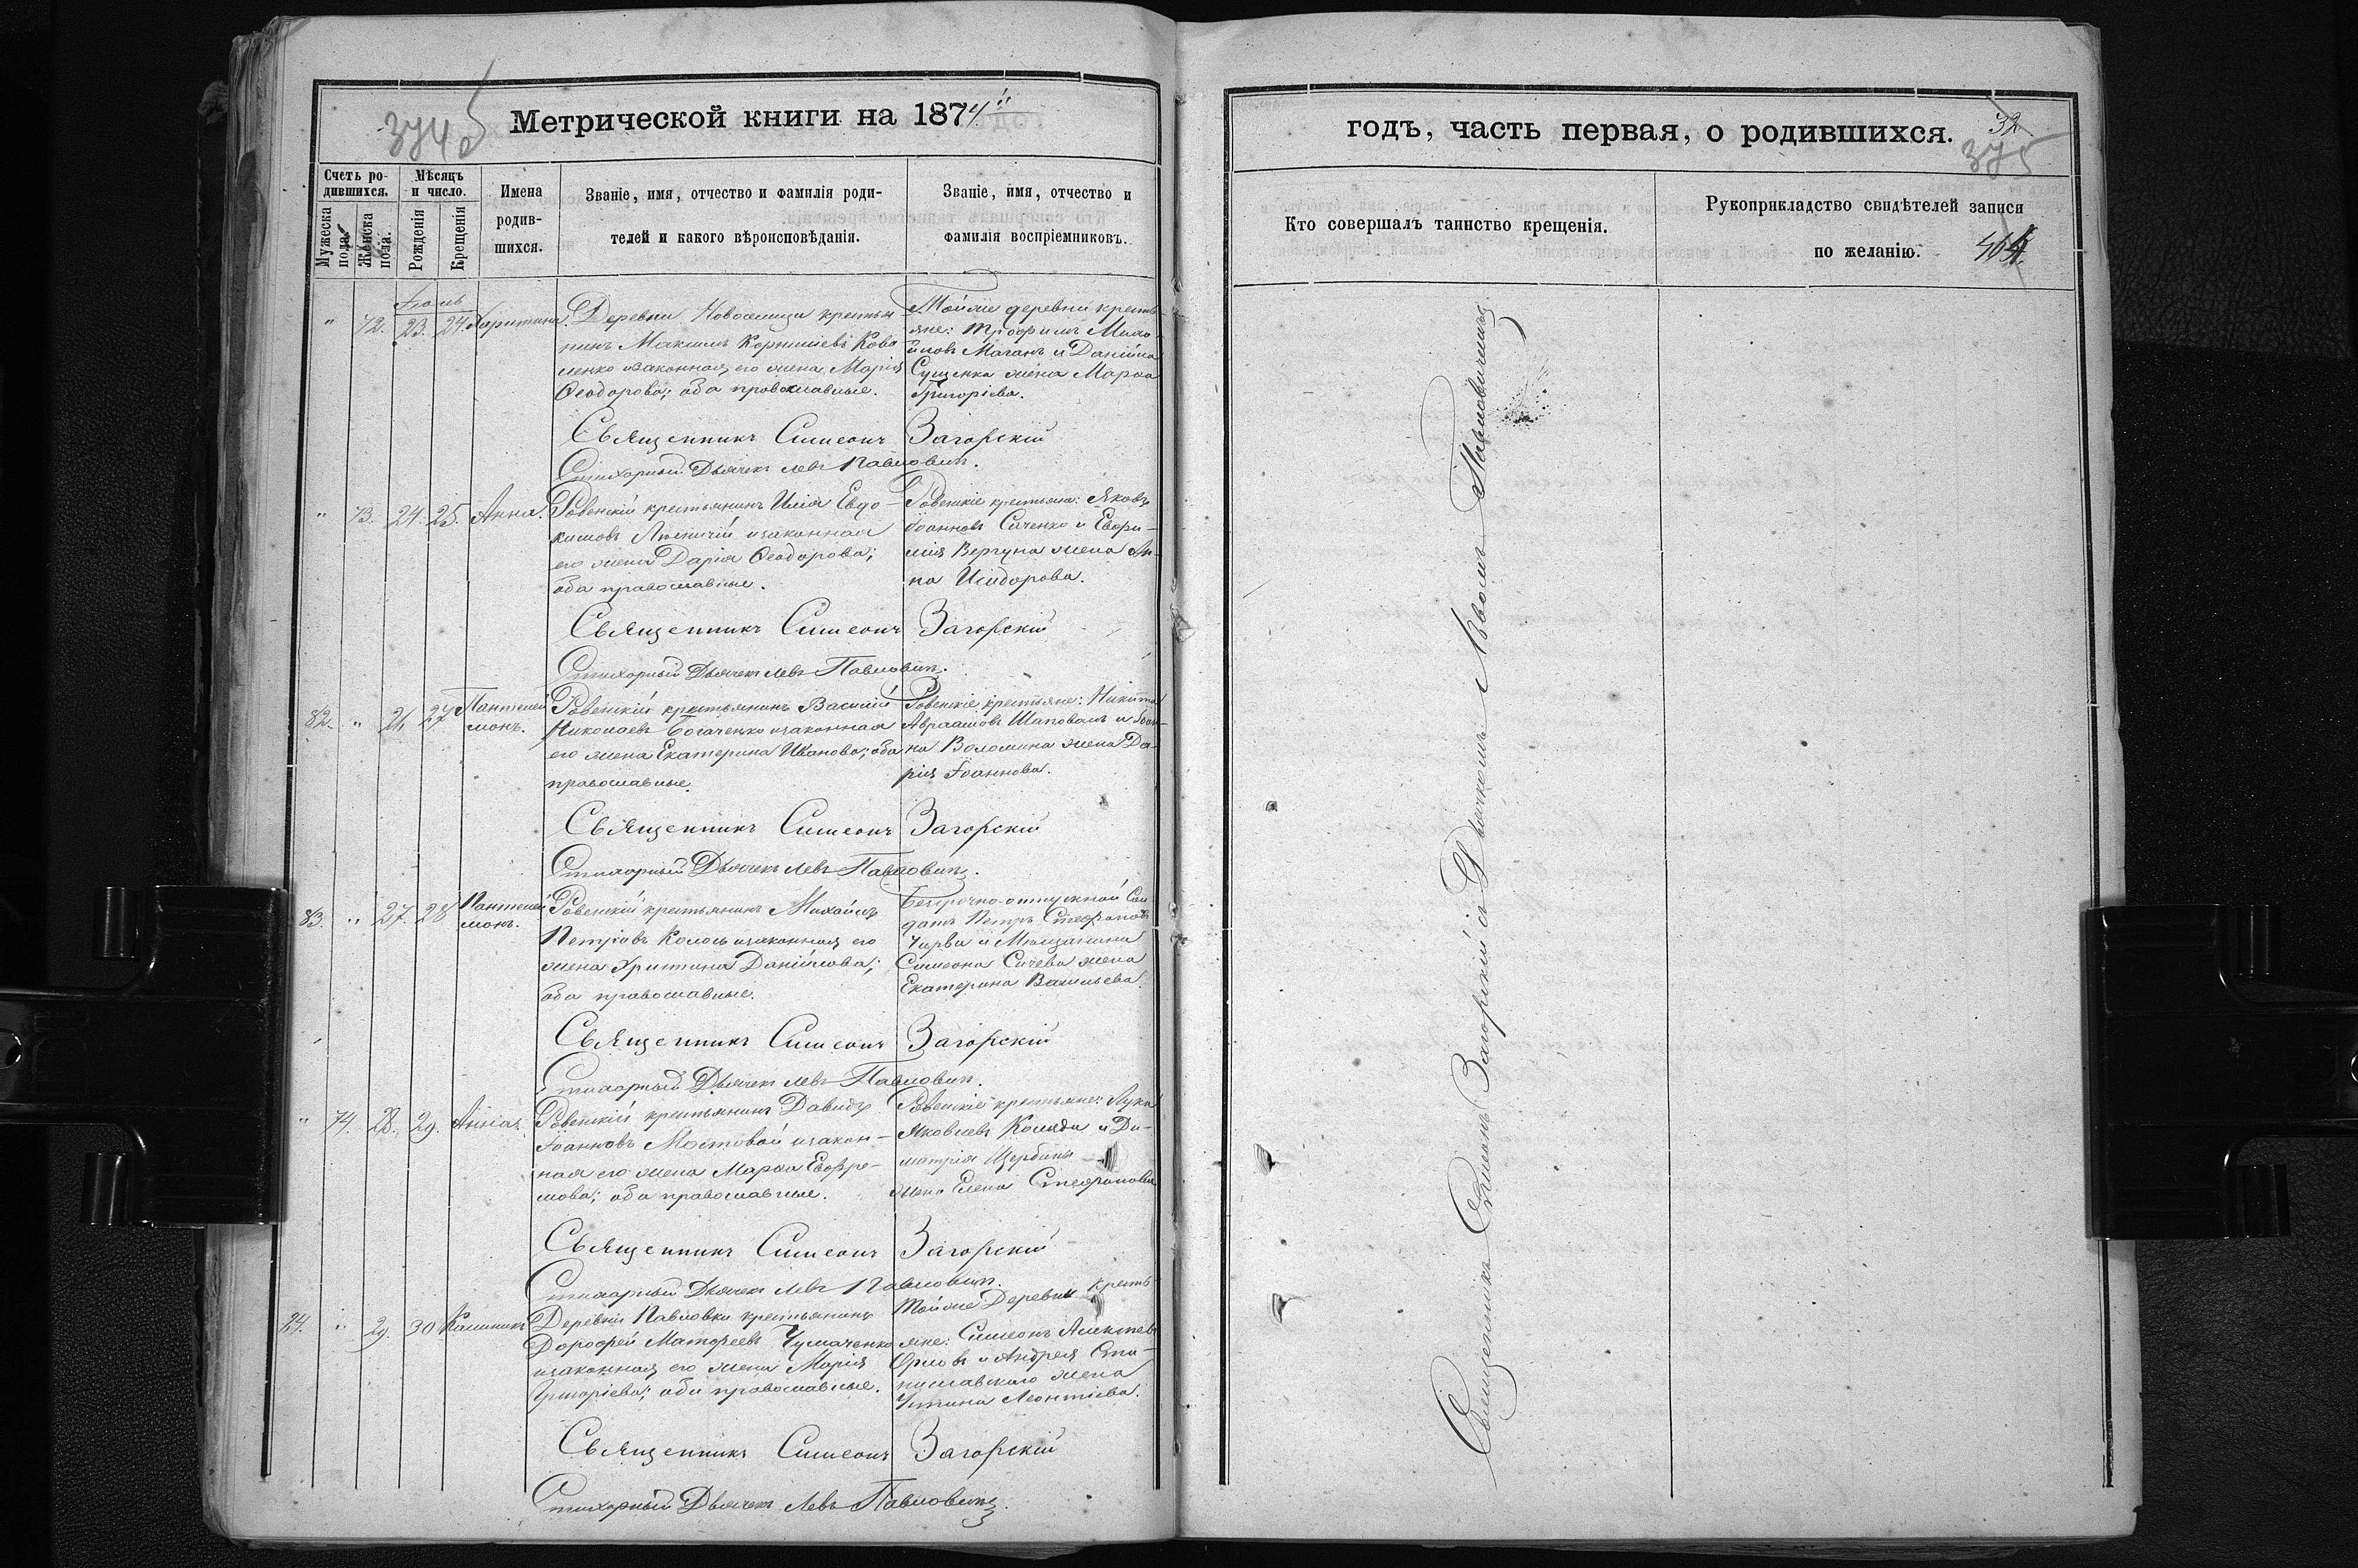 Метрической книги на 1874й
Счетъ родившихся.
Мужеска пола.
Женска пола.
Мѣсяцъ и число.
Рожденія
Крещенія
Имена родившихся.
Званіе, имя, отчество и фамилія родителей и какого вѣроисповѣданія.
Званіе, имя, отчество и фамилія воспріемниковъ.
Іюль
" 72. 23. 24. Харитина.
Деревни Новоселицы крестья
нинъ Максимъ Корнилiевъ Кова
ленко изаконная его жена Марія
Ѳеодорова; оба православные.
Тойже деревни кресть
яне: Трофимъ Миха
йловъ Маганъ и Даніила
Сущенка жена Марѳа
Григоріева.
Священникъ Симеонъ Загорскій
Стихарный Дьячекъ Левъ Павловичъ.
" 73. 24. 25. Анна.
Ровенскій крестьянинъ Илія Евдо-
кимовъ изаконная
его жена Дарія Ѳеодорова;
оба православные.
Ровенскіе крестьяне: Яковъ
Іоанновъ Саченко и Евфи-
мія Вергуна жена Ан-
на Исидорова.
Священникъ Симеонъ Загорскій
Стихарный Дьячекъ Левъ Павловичъ.
82. " 26 27 Пантелей
монъ.
Ровенскій крестьянинъ Василій
Николаевъ Богаченко изаконная
его жена Екатерина Иванова; оба
православные.
Ровенскіе крестьяне: Никита
Авраамовъ Шаповалъ и Іоан-
на Волошина жена Да-
рія Іоаннова.
Священникъ Симеонъ Загорскій
Стихарный Дьячекъ Левъ Павловичъ.
83. " 27. 28 Пантелей
монъ.
Ровенскій крестьянинъ Михаилъ
Петровъ Колосъ изаконная его
жена Христина Даніилова;
оба православные.
Безсрочно-отпускной Сол
датъ Петръ Стефановъ
Чирва и Мѣщанина
Симеона Сичева жена
Екатерина Васильева.
Священникъ Симеонъ Загорскій
Стихарный Дьячекъ Левъ Павловичъ.
" 74. 28. 29. Анна.
Ровенскій крестьянинъ Давидъ
Іоанновъ Мостовой изакон-
ная его жена Марѳа Евфре-
мова; оба православные.
Ровенскіе крестьяне: Лука
Яковлевъ Коляда и Ди-
митрія Щербины
жена Елена Стефанова
Священникъ Симеонъ Загорскій
Стихарный Дьячекъ Левъ Павловичъ.
84. " 29. 30 Калиникъ
Деревни Павловки крестьянинъ
Дорофей Матфеевъ Чумаченко
изаконная его жена Марія
Григоріева; оба православные.
Тойже Деревни кресть
яне: Симеонъ Алексѣевъ
Орловъ и Андрея
жена
Устина Леонтіева.
Священникъ Симеонъ Загорскій
Стихарный Дьячекъ Левъ Павловичъ.
годъ, часть первая, о родившихся.
32
375
Кто совершалъ таинство крещенія.
Рукоприкладство свидѣтелей записи
по желанію.
Священникъ Симеонъ Загорскій съ Дьячкомъ Львомъ Павловичемъ